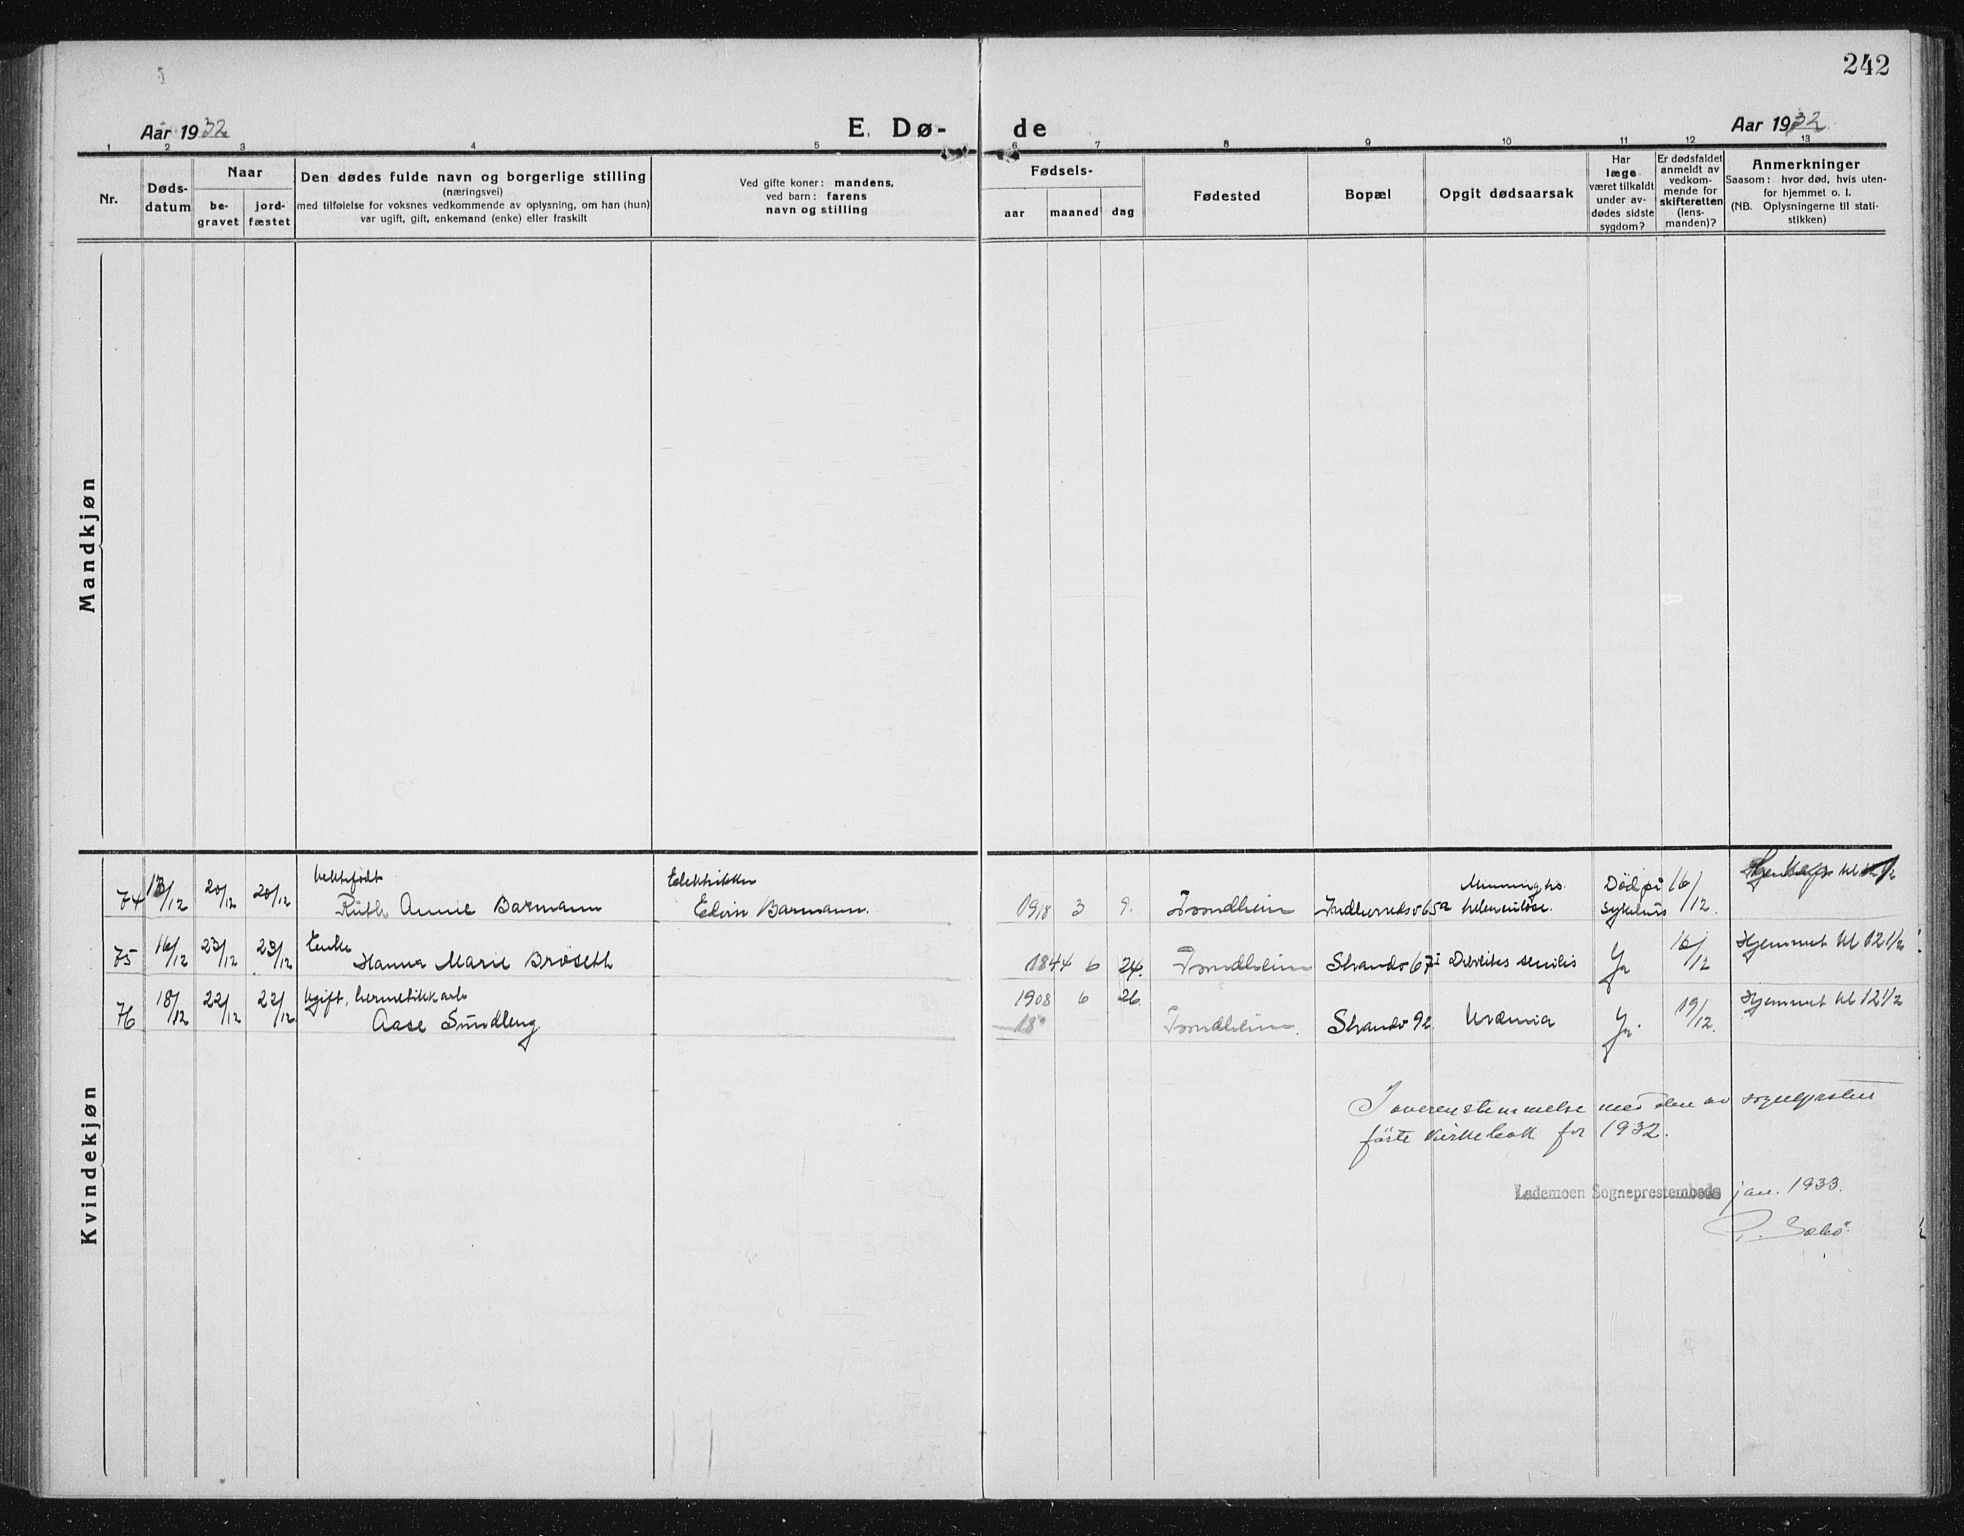 242
Aar 1932
E. Dø-
de
Aar 1932.
1 2 3 4 5 6 7 8 9 10 11 12 13
Nr.
Døds-
datum
Naar
be-
gravet
jord-
fæstet
Den dødes fulde navn og borgerlige stilling
(næringsvei)
med tilføielse for voksnes vedkommende av oplysning, om han (hun)
var ugift, gift, enkemand (enke) eller fraskilt
Ved gifte koner: mandens,
ved barn: farens
navn og stilling
Fødsels-
aar
maaned
dag
Fødested
Bopæl
Opgit dødsaarsak
Har
læge
været tilkaldt
under av-
dødes sidste
sygdom?
Er dødsfaldet
anmeldt av
vedkom-
mende for
skifteretten
(lens-
manden)?
Anmerkninger
Saasom: hvor død, hvis uten-
for hjemmet o. l.
(NB. Oplysningerne til stati-
stikken)
Mandkjøn
Kvindekjøn
ektefødt Elektriker
74 13/12 20/12 20/12 Ruth Annie Barmann Edvin Barmann. 1918 3 9. Trondheim Indherredsv 65a Død på sykehus 16/12.
Enke
75 16/12 23/12 23/12 Hanna Marie Brøseth 1844 6 24. Trondheim Strandv 67 senilis Ja 16/12 Hjemmet kl 12 1/2
Ugift, hermetikkarb
76 18/12 22/12 22/12 Aase Sundleng 1908 6 26 18 Trondheim. Strandv 92. Uræmia Ja. 19/12. Hjemmet kl 12 1/2
I overenstemmelse med den av sogneprsten
förte kirkebok for 1932.
Lademoen Sogneprestembede jan. 1933.
P. Sæbö.